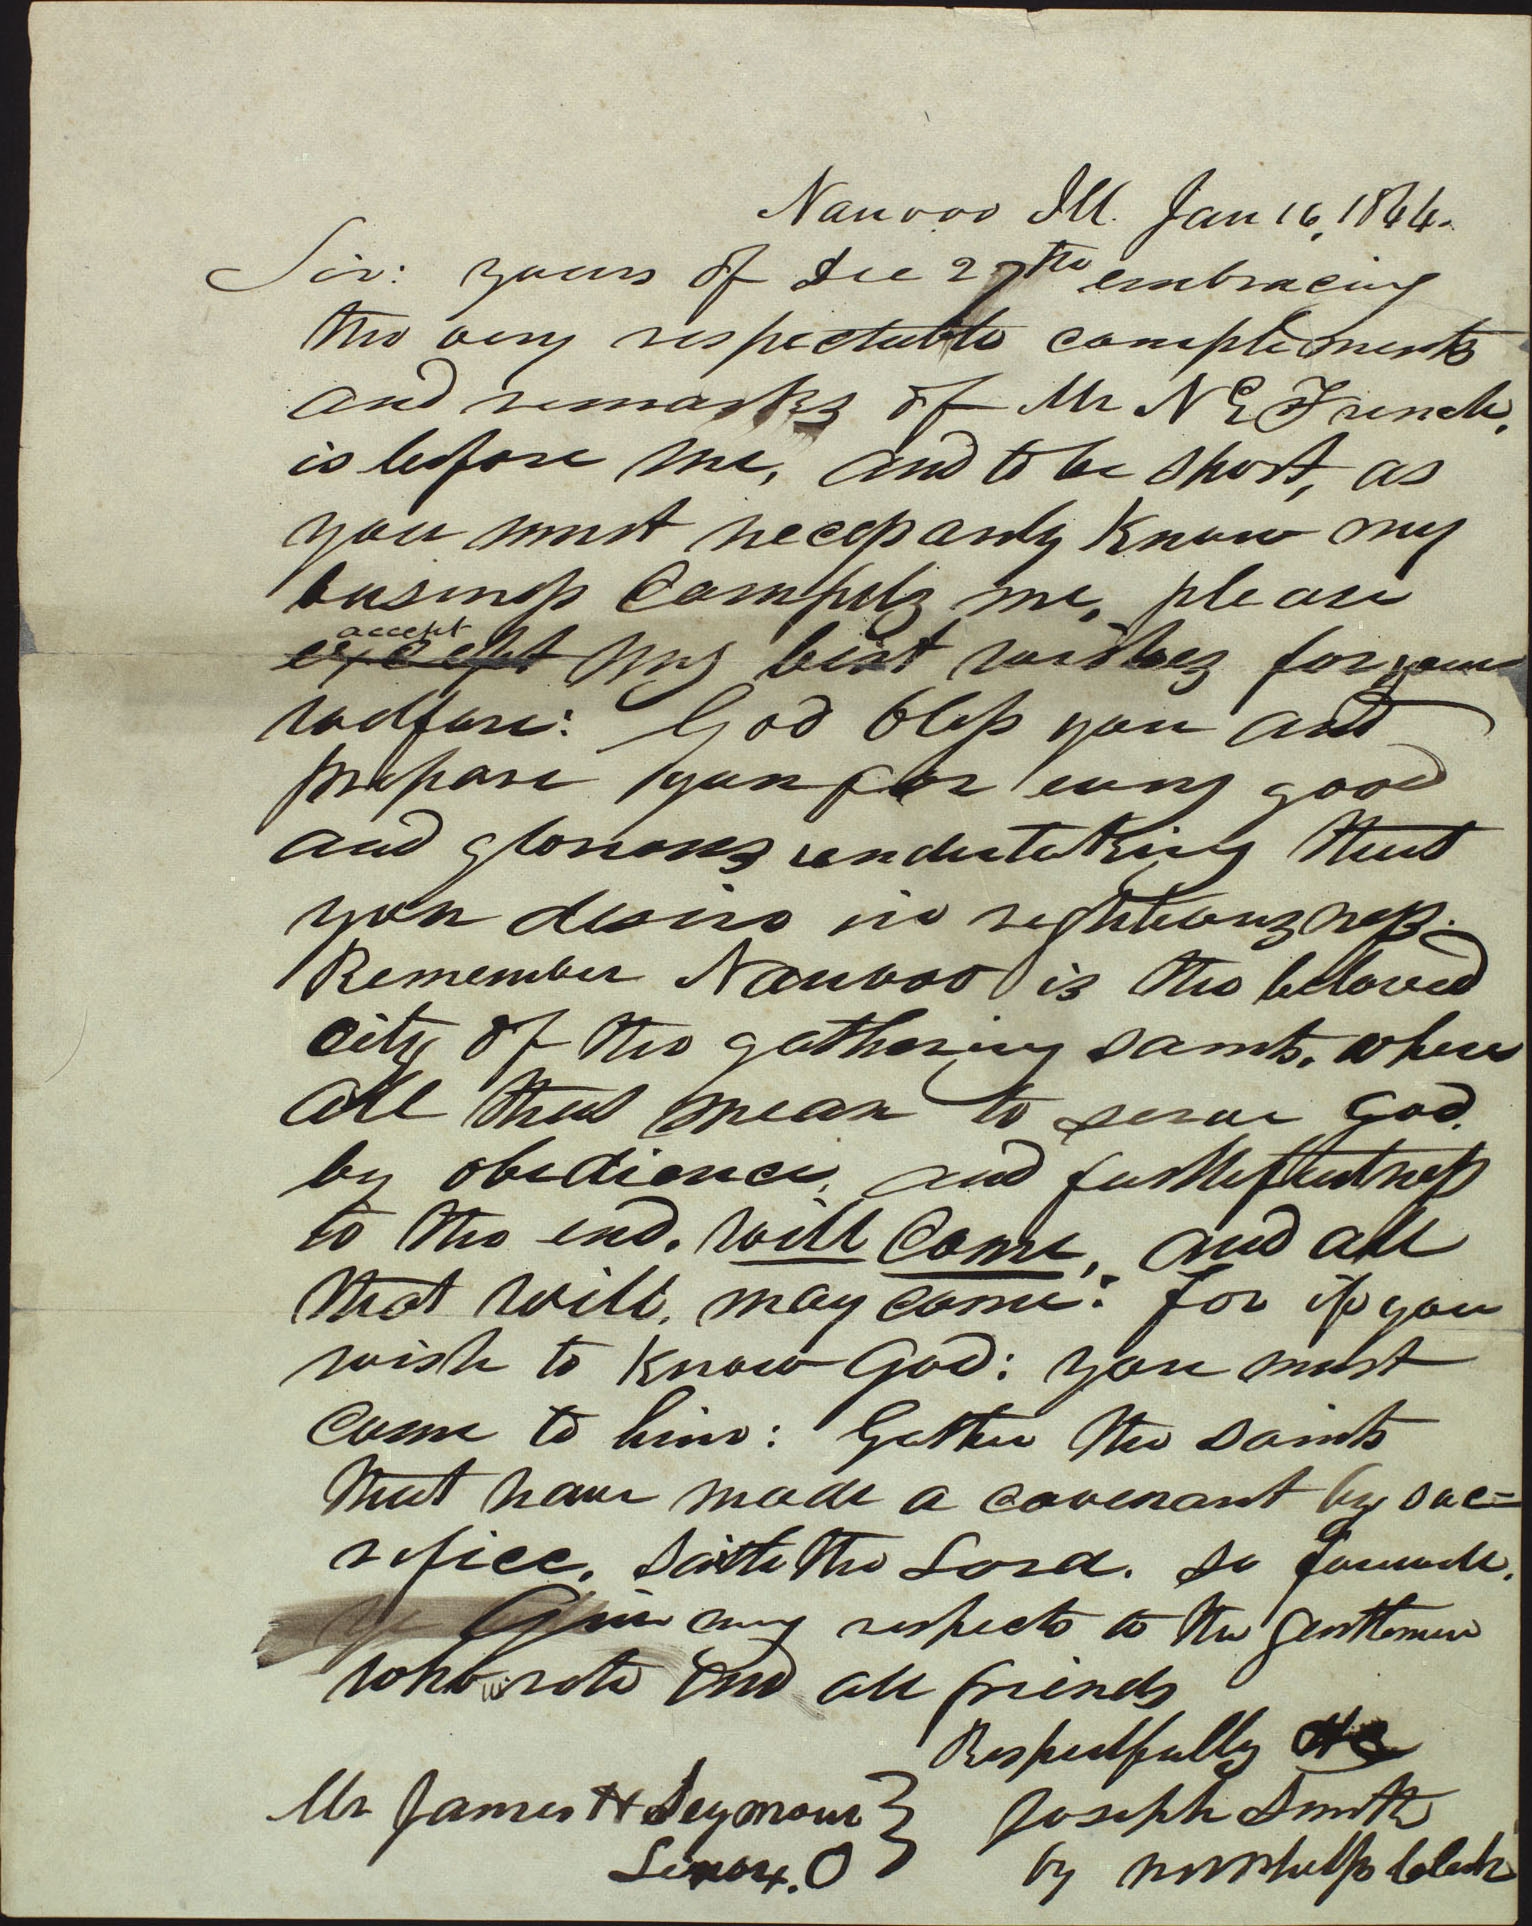 Nauvoo Ill. Jan 16, 1844.
Sir: yours of Dec 27th embracing
the very respectable compliments
and remarks of Mr N G French,
is before me, and to be short, as
you must necessarily know my
business compels me, please
accept
except my best wishes for your
welfare: God bless you and
prepare you for every good
and glorious undertaking that
you desire in righteousness.
Remember Nauvoo is the beloved
city of the gathering saints, where
all that mean to serve God.
by obedience, and faithfulness
to the end. will come, and all
that will, may come: for if you
wish to know God: you must
come to him: Gather the saints
that have made a covenant by sac=
rifice, saith the Lord. so farewell.
Give my respects to the gentleman
who wrote and all friends
Respectfully
Mr James H Seymour } Joseph Smith
Lenox. O } by W W Phelps Clerk